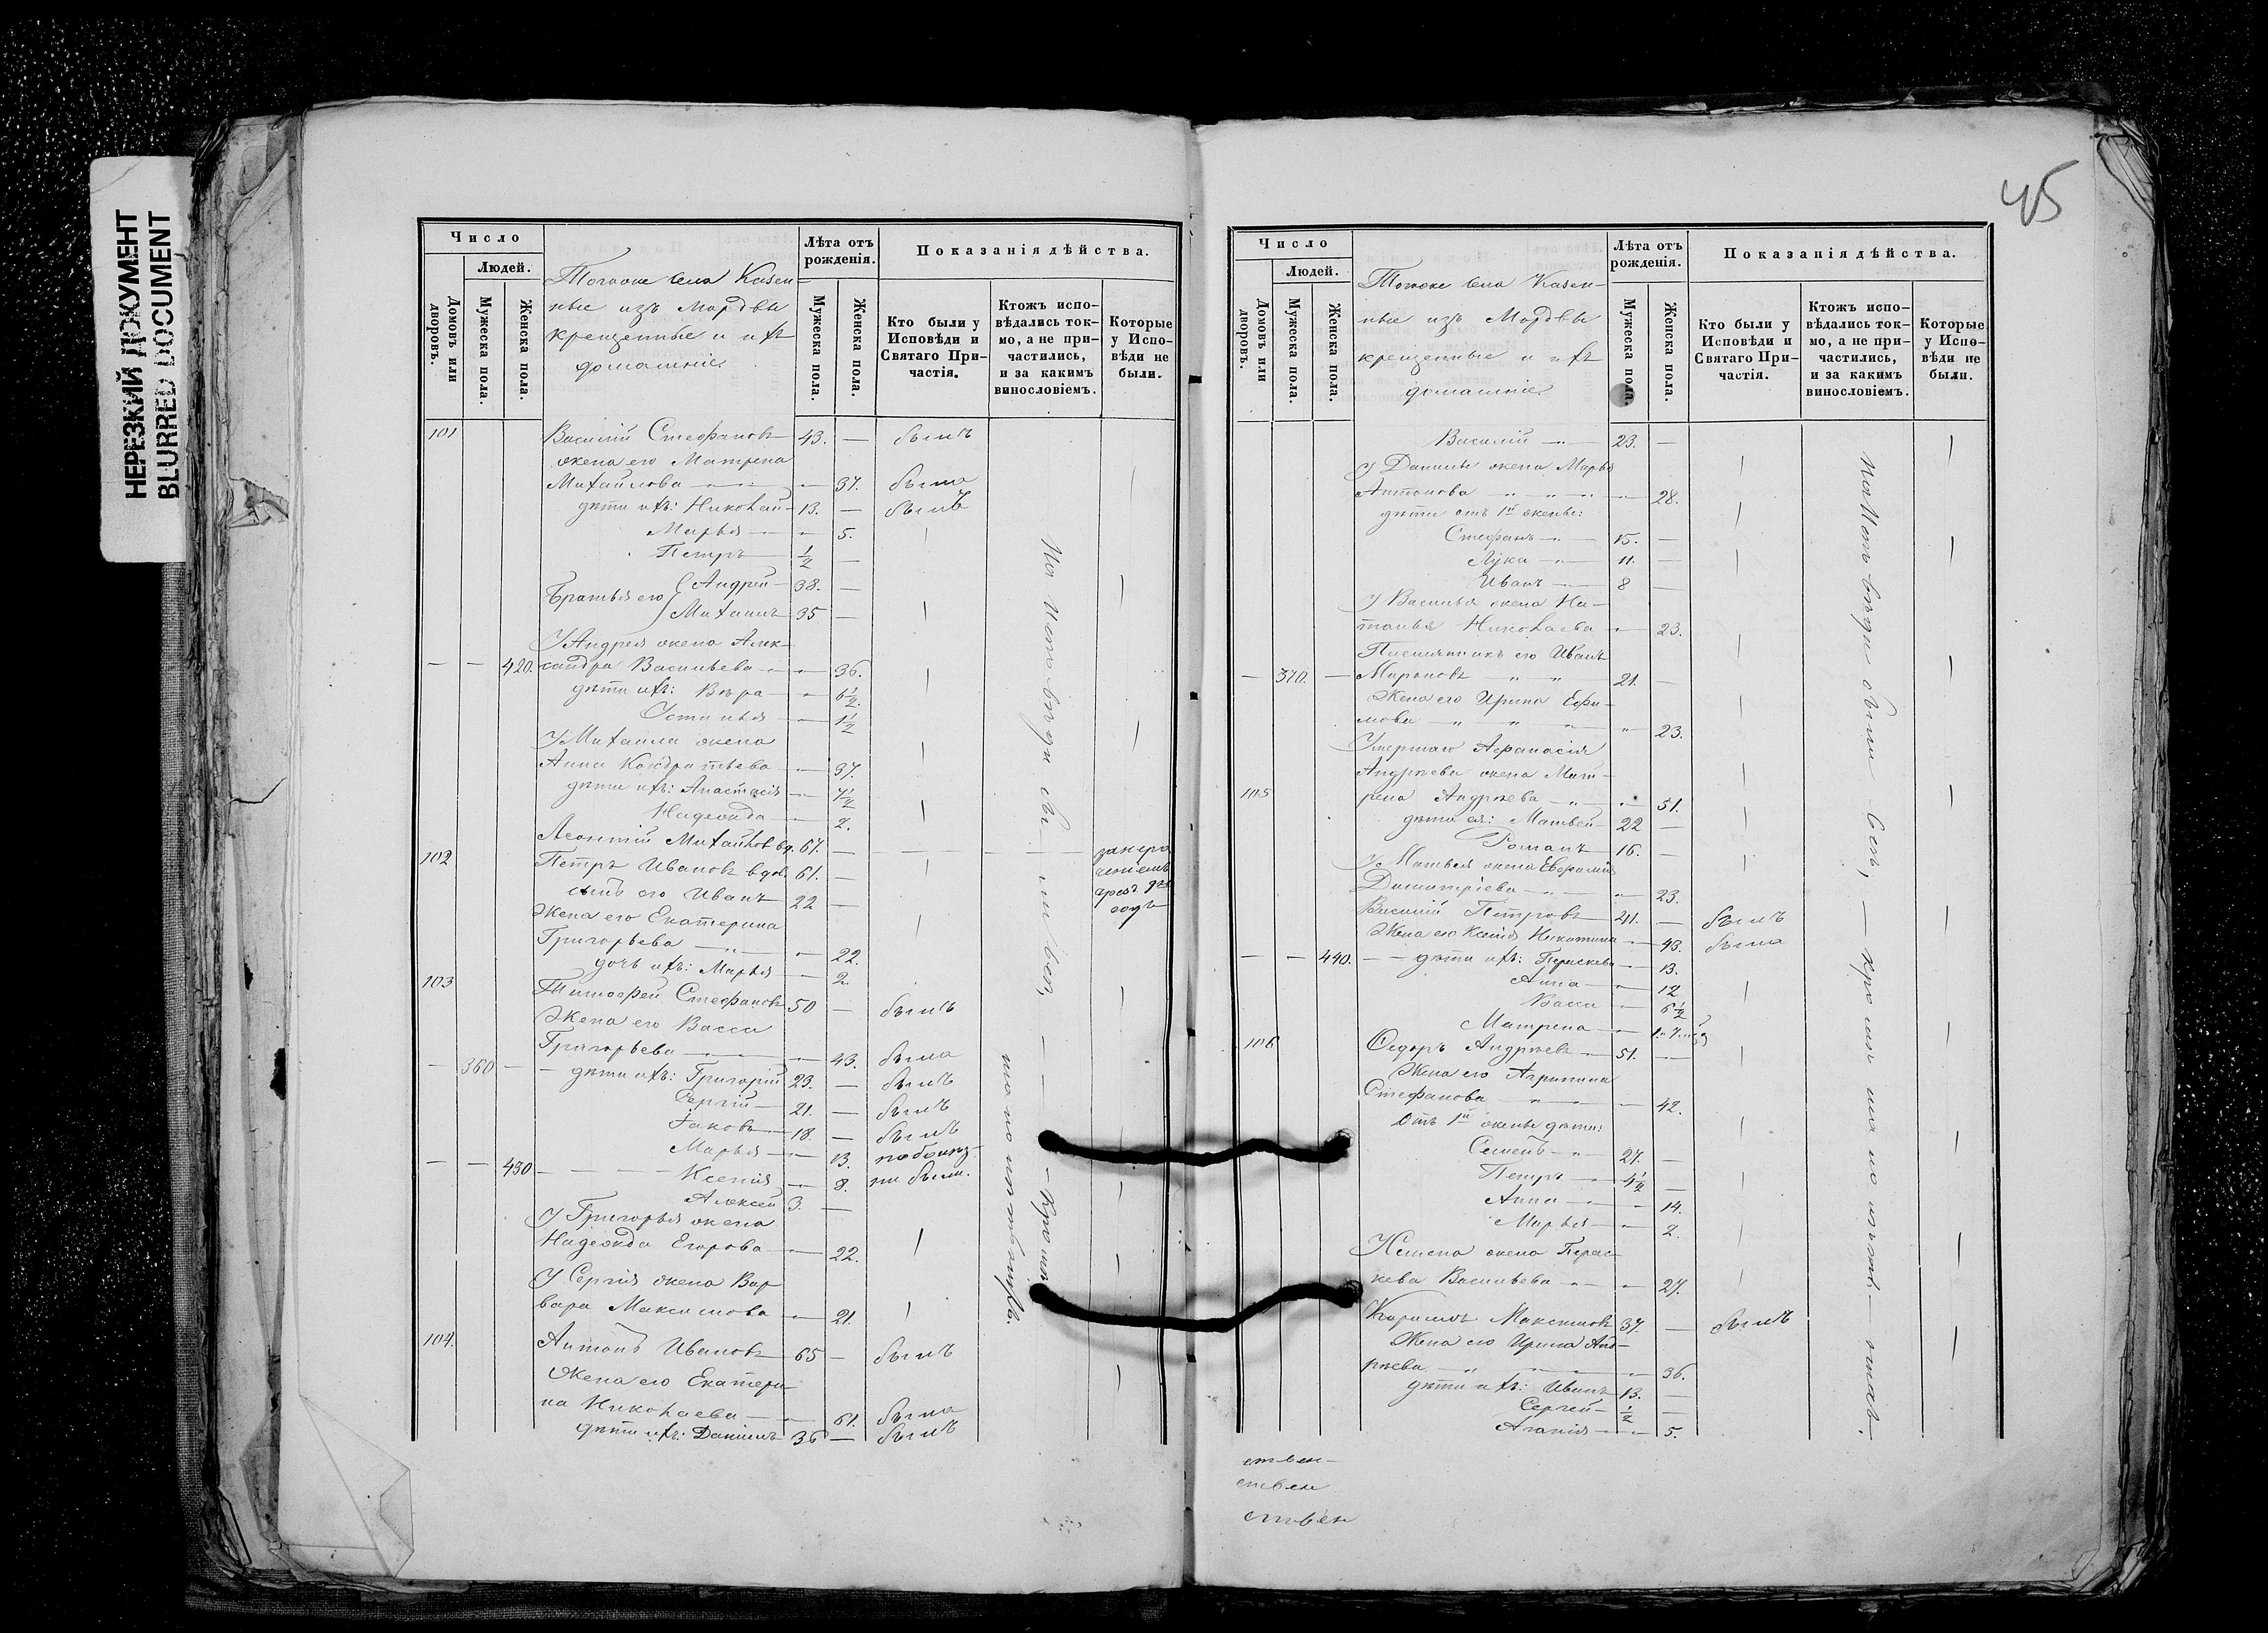 НЕРЕЗКИЙ ДОКУМЕНТ
BLURRED DOCUMENT
Число
Людей.
Домовъ или дворовъ.
Мужеска пола.
Женска пола.
Тогоже села Казен-
ные изъ Мордвы
крещенные и ихъ
домашніе.
Лѣта отъ рожденія.
Мужеска пола.
Женска пола.
Показанія дѣйства.
Кто были у Исповѣди и Святаго При-частія.
Ктожъ испо-вѣдались ток-мо, а не при-частились, и за какимъ винословіемъ.
Которые у Испо-вѣди не были.
101 Василій Стефановъ 43. — былъ
жена его Матрена
Михайлова — 37. была
дѣти ихъ: Николай 13. — былъ
Марья — 5.
Петръ 1/2 —
Братья его Андрей 38. —
Михаилъ 35 —
У Андрея жена Алек-
— — 420. сандра Васильева — 36.
дѣти ихъ: Вѣра — 6 1/2.
Устинья — 1 1/2
У Михаила жена
Анна Кондратьева — 37.
дѣти ихъ: Анастасія — 7 1/2
Надежда — 2.
Леонтій Михайловъ вд. 67. —
102 Петръ Ивановъ вдов. 61. —
сынъ его Иванъ 22 —
Жена его Екатерина
Григорьева — 22.
дочь ихъ: Марья — 2.
103 Тимофей Стефановъ 50 — былъ
Жена его Васса
Григорьева — 43. была
— 360 — дѣти ихъ: Григорій 23. — былъ
Сергій 21. — былъ
Іаковъ 18. — былъ
Марья — 13.
— — 430 — Ксенія — 8. ни были.
Алексей 3. —
У Григорья жена
Надежда Егорова — 22.
У Сергія жена Вар
вара Максимова — 21.
104. Антонъ Ивановъ 65 — былъ
Жена его Екатери
на Николаева — 61. была
дѣти ихъ: Даніилъ 36 — былъ
45
Число
Людей.
Домовъ или дворовъ.
Мужеска пола.
Женска пола.
Тогоже села Казен-
ные изъ Мордвы
крещенные и ихъ
домашніе.
Лѣта отъ рожденія.
Мужеска пола.
Женска пола.
Показанія дѣйства.
Кто были у Исповѣди и Святаго При-частія.
Ктожъ испо-вѣдались ток-мо, а не при-частились, и за какимъ винословіемъ.
Которые у Испо-вѣди не были.
Василій 23. —
У Даніила жена Марья
Антонова — 28.
дѣти отъ 1й жены:
Стефанъ 15. —
Лука 11. —
Иванъ 8 —
У Василья жена На-
талья Николаева — 23.
Племянникъ его Иванъ
— 370. — Мироновъ 21. —
Жена его Ирина Ефи-
мова — 23.
Умершаго Афанасія
Андрѣева жена Мат-
105 рена Андрѣева — 51.
дѣти ея: Матвей 22 —
Романъ 16. —
У Матвея жена Евфимія
Димитріева — 23.
Василій Петровъ 41. — былъ
Жена его Ксенія Никитина — 43. была
— — 440. — дѣти ихъ: Параскева — 13.
Анна — 12
Васса — 6 1/2
Матрена —
106 Ѳедоръ Андрѣевъ 51. —
Жена его Агрипина
Стефанова — 42.
Отъ 1й жены дѣти:
Семенъ 27. —
Петръ 4 1/2 —
Анна — 14.
Марья — 2.
У Семена жена Парас
кева Васильева — 27.
Кирилъ Максимовъ 37. — былъ
Жена его Ирина Анд-
рѣева — 36.
дѣти ихъ: Иванъ 13. —
Сергей 1/2 —
Агапія — 5.
ствен-
ствен
ствен